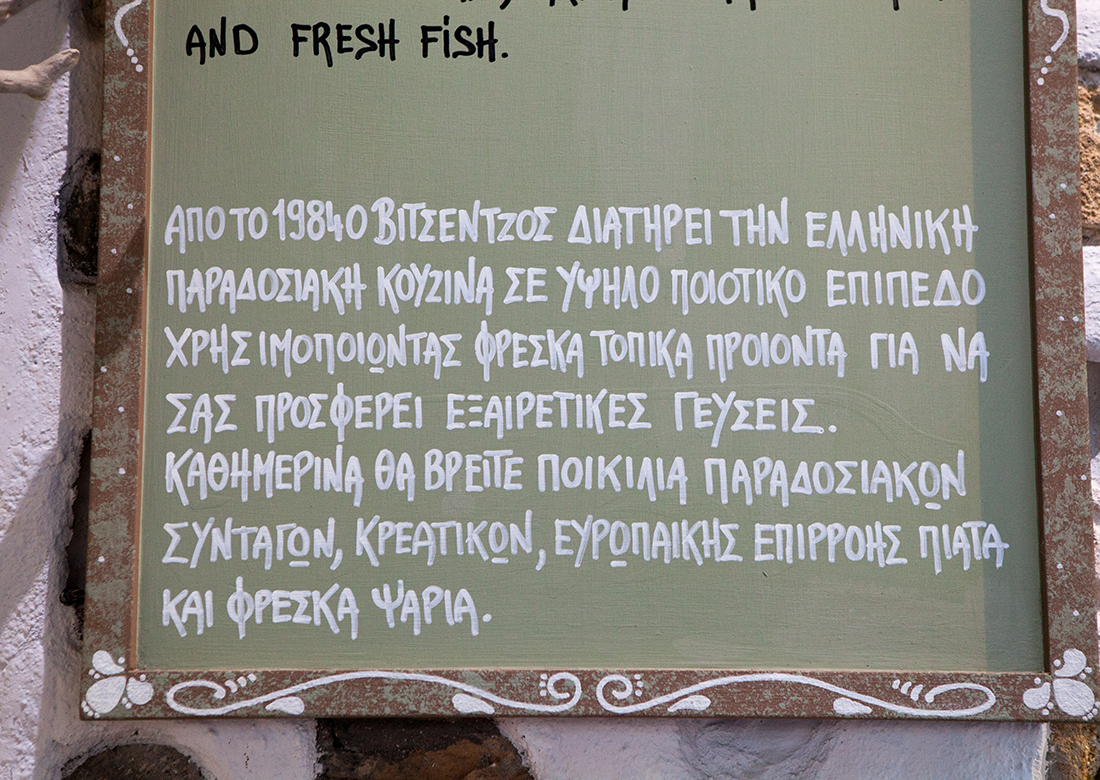 AND FRESH FISH.
ΑΠΟ ΤΟ 1984 Ο ΒΙΤΣΕΝΤΖΟΣ ΔΙΑΤΗΡΕΙ ΤΗΝ ΕΛΛΗΝΙΚΗ
ΠΑΡΑΔΟΣΙΑΚΗ ΚΟΥΖΙΝΑ ΣΕ ΥΨΗΛΟ ΠΟΙΟΤΙΚΟ ΕΠΙΠΕΔΟ
ΧΡΗΣΙΜΟΠΟΙΩΝΤΑΣ ΦΡΕΣΚΑ ΤΟΠΙΚΑ ΠΡΟΙΟΝΤΑ ΓΙΑ ΝΑ
ΣΑΣ ΠΡΟΣΦΕΡΕΙ ΕΞΑΙΡΕΤΙΚΕΣ ΓΕΥΣΕΙΣ.
ΚΑΘΗΜΕΡΙΝΑ ΘΑ ΒΡΕΙΤΕ ΠΟΙΚΙΛΙΑ ΠΑΡΑΔΟΣΙΑΚΩΝ
ΣΥΝΤΑΓΩΝ, ΚΡΕΑΤΙΚΩΝ, ΕΥΡΩΠΑΙΚΗΣ ΕΠΙΡΡΟΗΣ ΠΙΑΤΑ
ΚΑΙ ΦΡΕΣΚΑ ΨΑΡΙΑ.